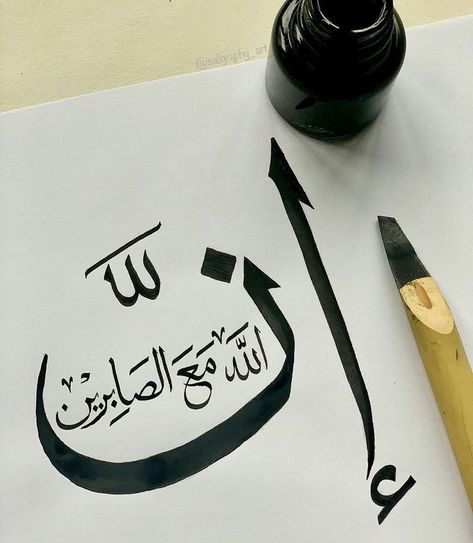 @saligraphy_art
إنَّ
اللَّه مَعَ الصَابِرين